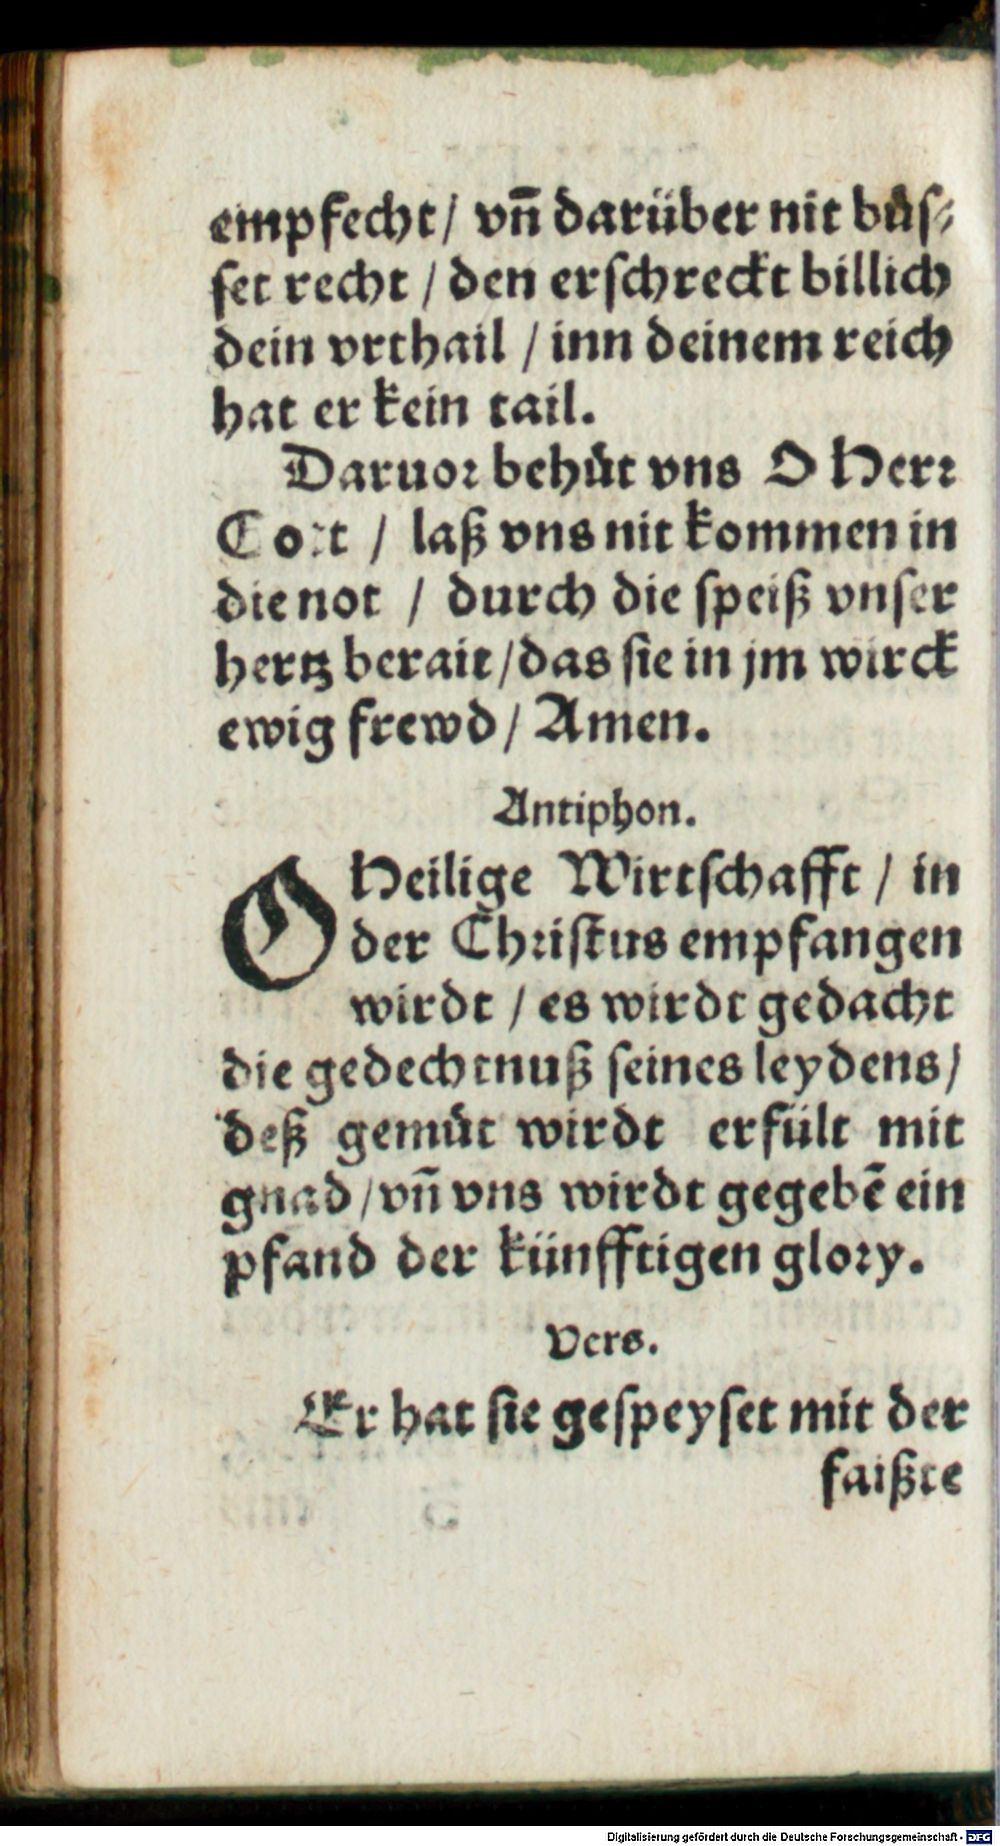 empfecht/ vn̄ darüber nit bůſ⸗
ſet recht / den erſchreckt billich
dein vrthail / inn deinem reich
hat er kein tail.
Daruor behůt vns O Herr
Gott / laß vns nit kommen in
die not / durch die ſpeiß vnſer
hertz berait/das ſie in jm wirck
ewig frewd / Amen.
Antiphon.
O Heilige Wirtſchafft / in
der Chriſtus empfangen
wirdt / es wirdt gedacht
die gedechtnuß ſeines leydens/
deß gemůt wirdt erfült mit
gnad /vn̄ vns wirdt gegebē ein
pfand der künfftigen glory.
Vers.
Er hat ſie geſpeyſet mit der
faißte
Digitalisierung gefördert durch die Deutsche Forschungsgemeinschaft - DFG